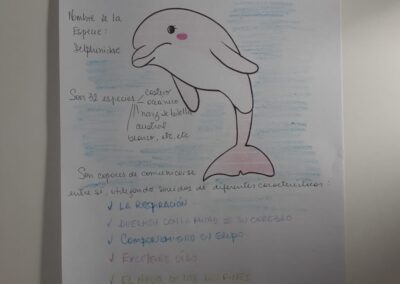 Nombre de la
Especie:
Delphinidae
Son 32 especies
costero
oceánico
nariz de botella
austral
blanco, etc, etc
Son capaces de comunicarse
entre sí, utilizando sonidos de diferentes características:
✓ LA RESPIRACIÓN
✓ DUERMEN CON LA MITAD DE SU CEREBRO
✓ COMPORTAMIENTO EN GRUPO
✓ EXCELENTE OÍDO
✓ EL NADO DE LOS DELFINES